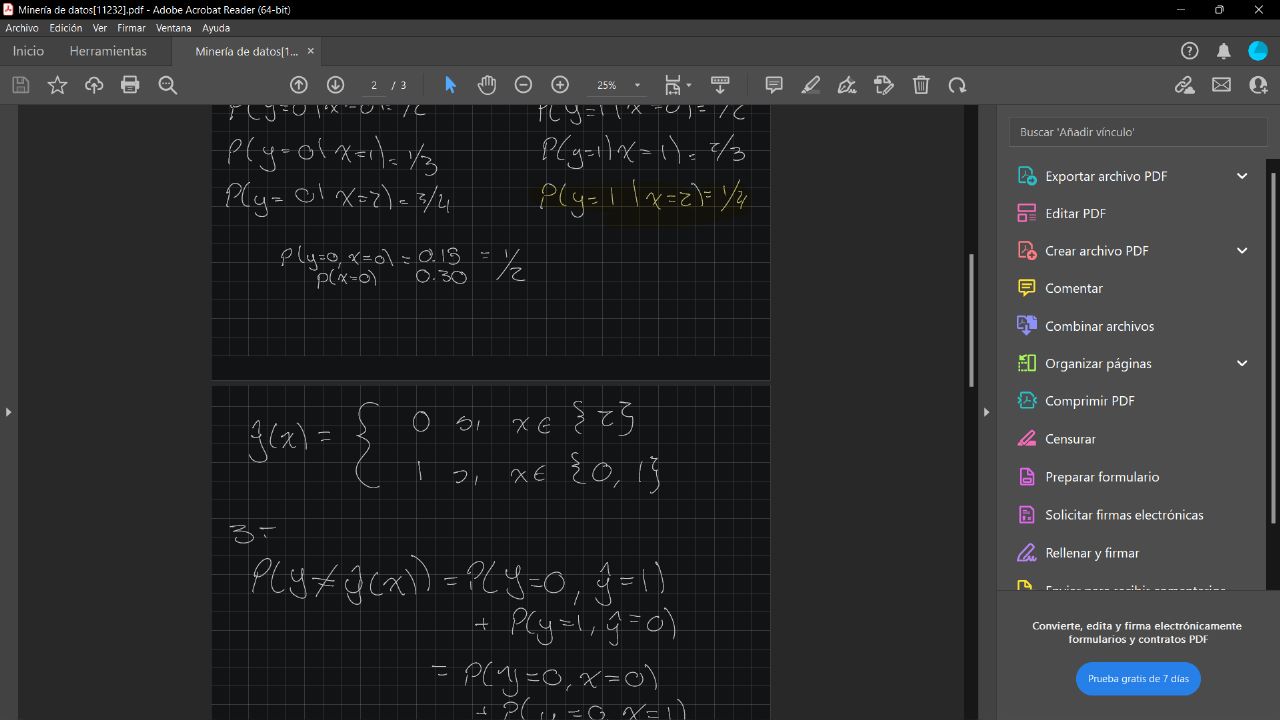 Minería de datos[11232].pdf - Adobe Acrobat Reader (64-bit)
Archivo Edición Ver Firmar Ventana Ayuda
Inicio Herramientas Minería de datos[1... ×
2 / 3 25%
P(y=0|x=0)=1/2 P(y=1|x=0)=1/2
P(y=0|x=1)=1/3 P(y=1|x=1)=2/3
P(y=0|x=2)=3/4 P(y=1|x=2)=1/4
P(y=0,x=0) = 0.15 = 1/2
P(x=0) 0.30
ŷ(x) = { 0 si x∈ {2}
1 si x∈ {0,1}
3=
P(y≠ŷ(x)) = P(y=0, ŷ=1)
+ P(y=1, ŷ=0)
= P(y=0, x=0)
+ P(y=0, x=1)
Buscar 'Añadir vínculo'
Exportar archivo PDF
Editar PDF
Crear archivo PDF
Comentar
Combinar archivos
Organizar páginas
Comprimir PDF
Censurar
Preparar formulario
Solicitar firmas electrónicas
Rellenar y firmar
Enviar para recibir comentarios
Convierte, edita y firma electrónicamente
formularios y contratos PDF
Prueba gratis de 7 días